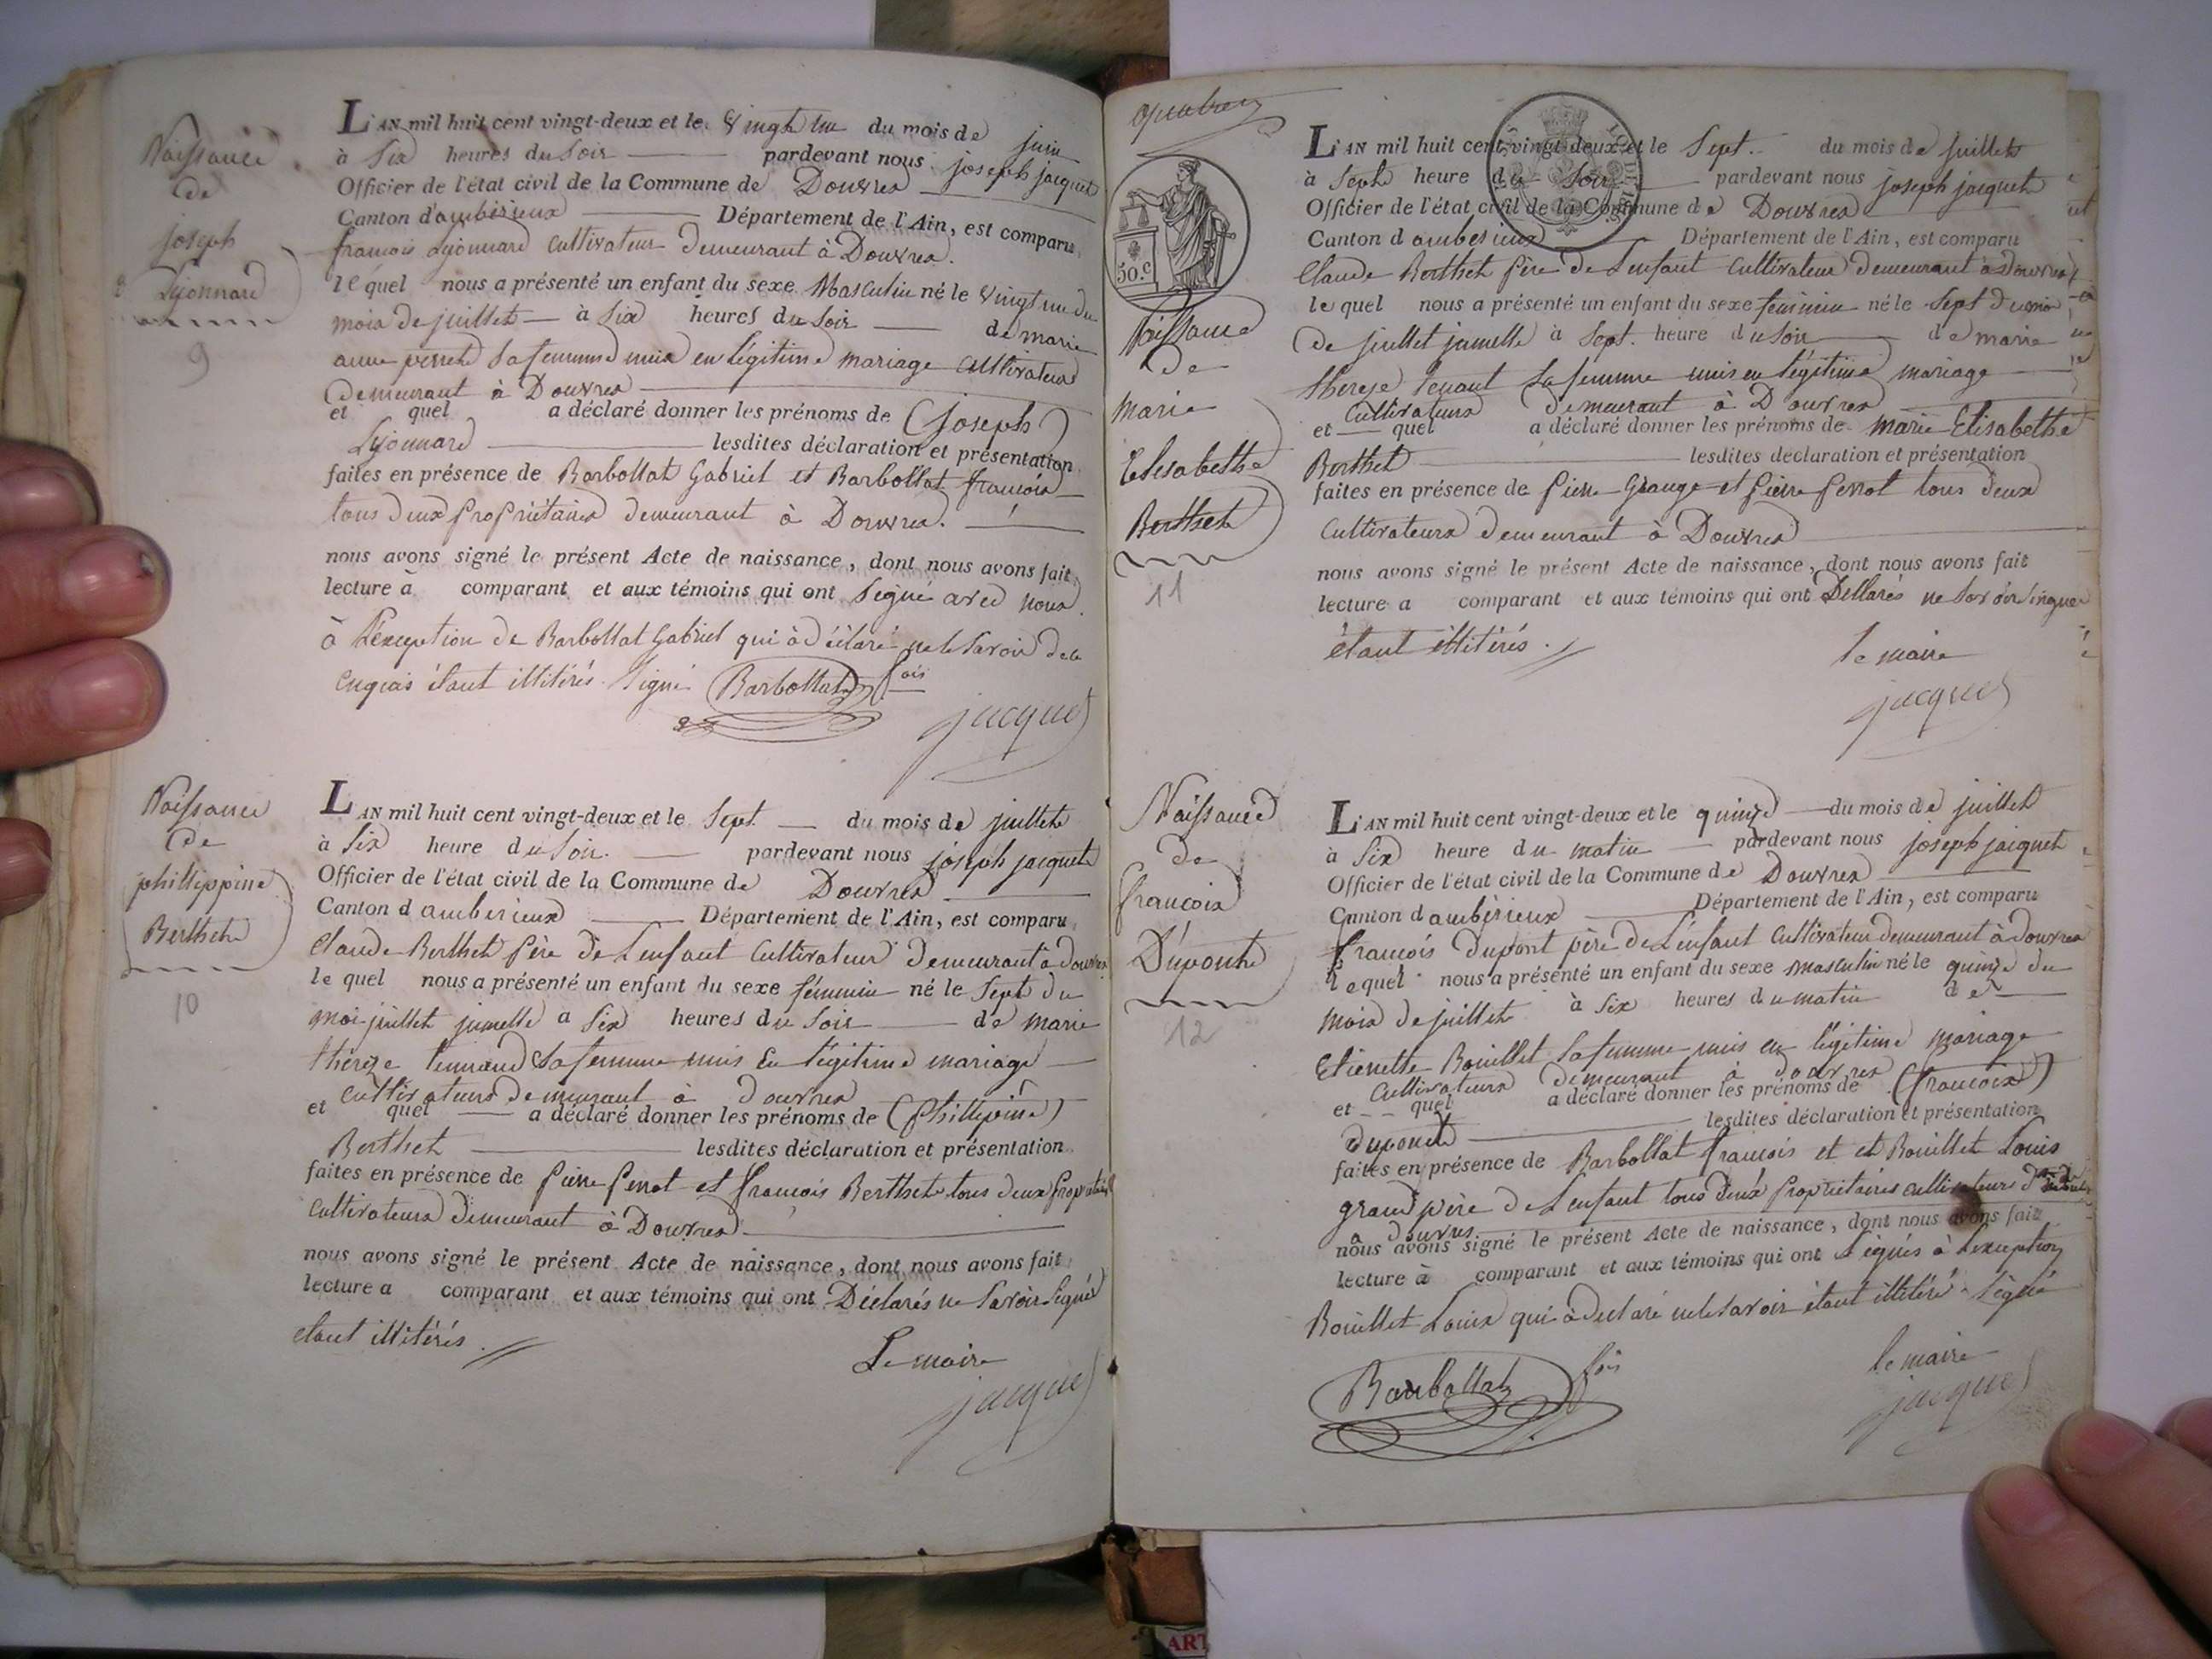 Naissance
de
joseph
Lyonnard
9
L'AN mil huit cent vingt-deux et le Vingt un du mois de juin
à Six heures du Soir pardevant nous joseph jacquet
Officier de l'état civil de la Commune de Douvres
Canton d'ambérieux Département de l'Ain, est comparu
francois Lyonnard cultivateur demeurant à Douvres.
lequel nous a présenté un enfant du sexe Masculin né le Vingt un du
mois de juillet à Six heures du Soir de marie
anne perret Sa femme unis en légitime mariage cultivateurs
demeurant à Douvres
et quel a déclaré donner les prénoms de (joseph)
Lyonnard lesdites déclaration et présentation
faites en présence de Barbollat Gabriel et Barbollat francois
tous deux propriétaires demeurant à Douvres.
nous avons signé le présent Acte de naissance, dont nous avons fait
lecture à comparant et aux témoins qui ont Signé avec nous
à L'exception de Barbollat Gabriel qui à déclaré ne le Savoir de ce
enquis étant illitérés. Signé Barbollat fois
jacquet
Naissance
de
phillippine
Berthet
10
L'AN mil huit cent vingt-deux et le Sept du mois de juillet
à Six heure du Soir. pardevant nous joseph jacquet
Officier de l'état civil de la Commune de Douvres
Canton d ambérieux Département de l'Ain, est comparu
Claude Berthet père de L'enfant Cultivateur demeurant à douvres
le quel nous a présenté un enfant du sexe féminin né le Sept du
moi juillet jumelle a Six heures du Soir de marie
thérèze tenand Sa femme unis En légitime mariage
cultivateurs demeurant à douvres
et quel a déclaré donner les prénoms de (phillipine)
Berthet lesdites déclaration et présentation
faites en présence de pierre perrot et francois Berthet tous deux propriétaires
Cultivateurs demeurant à Douvres
nous avons signé le présent Acte de naissance, dont nous avons fait
lecture a comparant et aux témoins qui ont Déclarés ne Savoir Signés
étant illitérés.
Le maire
jacquet
50.c
Naissance
de
marie
Elisabethe
Berthet
11
L'AN mil huit cent vingt-deux et le Sept. du mois de juillet
à Sept heure du Soir pardevant nous joseph jacquet
Officier de l'état civil de la Commune de Douvres
Canton d ambérieux Département de l'Ain, est comparu
Claude Berthet père de L'enfant Cultivateur demeurant à Douvres
le quel nous a présenté un enfant du sexe feminin né le Sept du moi
de juillet jumelle à Sept. heure du Soir de marie
thereze tenant Sa femme unis en légitime mariage
Cultivateurs demeurant à Douvres
et quel a déclaré donner les prénoms de marie Elisabethe
Berthet lesdites déclaration et présentation
faites en présence de pierre Grange et pierre perrot tous deux
Cultivateurs demeurant à Douvres
nous avons signé le présent Acte de naissance, dont nous avons fait
lecture a comparant et aux témoins qui ont Déllarés ne Savoir Singner
étant illitérés.
le maire
jacquet
Naissance
de
francois
Dupont
12
L'AN mil huit cent vingt-deux et le quinze du mois de juillet
à Six heure du matin pardevant nous joseph jacquet
Officier de l'état civil de la Commune de Douvres
Canton d ambérieux Département de l'Ain, est comparu
francois dupont père de L'enfant Cultivateur demeurant à douvres
lequel nous a présenté un enfant du sexe masculin né le quinze du
mois de juillet à Six heures du matin de
Etienette Bouillet Sa femme unis en légitime mariage
Cultivateurs demeurant à douvres
et quel a déclaré donner les prénoms de (francois)
dupont lesdites déclaration et présentation
faites en présence de Barbollat francois et et Bouillet Louis
grand père de L'enfant tous deux propriétaires cultivateurs
a douvres
nous avons signé le présent Acte de naissance, dont nous avons fait
lecture à comparant et aux témoins qui ont Signés à L'exception
Bouillet Louis qui à déclaré ne le Savoir étant illitéré. Signé
Barbollat fois
le maire
jacquet
ART